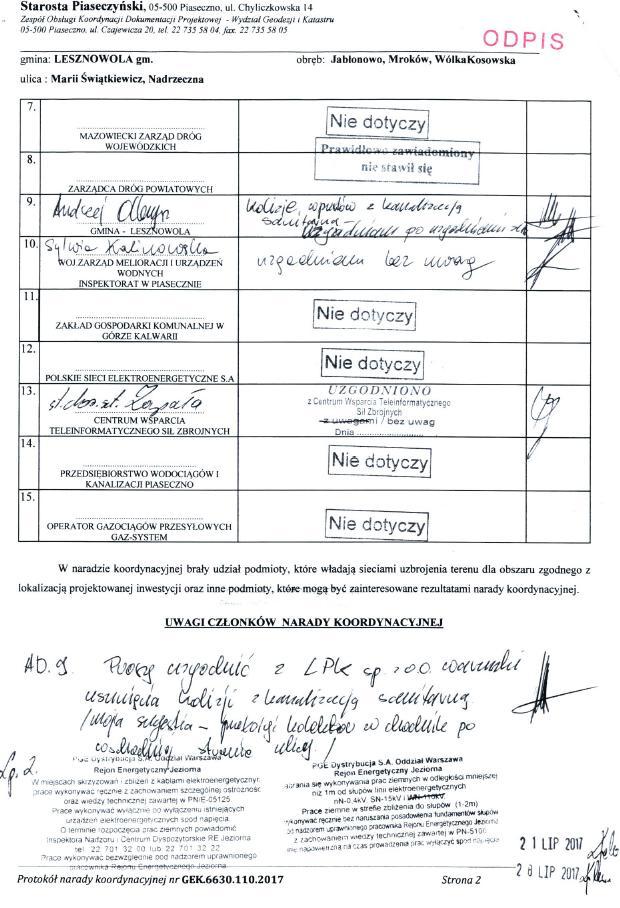 Starosta Piaseczyński, 05-500 Piaseczno, ul. Chyliczkowska 14
Zespół Obsługi Koordynacji Dokumentacji Projektowej - Wydział Geodezji i Katastru
05-500 Piaseczno, ul. Czajewicza 20, tel. 22 735 58 04, fax. 22 735 58 05
ODPIS
gmina: LESZNOWOLA gm. obręb: Jabłonowo, Mroków, WólkaKosowska
ulica : Marii Świątkiewicz, Nadrzeczna
7.
MAZOWIECKI ZARZĄD DRÓG
WOJEWÓDZKICH
Nie dotyczy
8.
ZARZĄDCA DRÓG POWIATOWYCH
Prawidłowo zawiadomiony
nie stawił się
9.
Andrzej
GMINA - LESZNOWOLA
kolizje z kanalizacją
sanitarną -
10.
Sylwia Kalinowska
WOJ.ZARZĄD MELIORACJI I URZĄDZEŃ
WODNYCH
INSPEKTORAT W PIASECZNIE
uzgadniam bez uwag
11.
ZAKŁAD GOSPODARKI KOMUNALNEJ W
GÓRZE KALWARII
Nie dotyczy
12.
POLSKIE SIECI ELEKTROENERGETYCZNE S.A
Nie dotyczy
13.
CENTRUM WSPARCIA
TELEINFORMATYCZNEGO SIŁ ZBROJNYCH
UZGODNIONO
z Centrum Wsparcia Teleinformatycznego
Sił Zbrojnych
z uwagami / bez uwag
Dnia
14.
PRZEDSIĘBIORSTWO WODOCIĄGÓW I
KANALIZACJI PIASECZNO
Nie dotyczy
15.
OPERATOR GAZOCIĄGÓW PRZESYŁOWYCH
GAZ-SYSTEM
Nie dotyczy
W naradzie koordynacyjnej brały udział podmioty, które władają sieciami uzbrojenia terenu dla obszaru zgodnego z
lokalizacją projektowanej inwestycji oraz inne podmioty, które mogą być zainteresowane rezultatami narady koordynacyjnej.
UWAGI CZŁONKÓW NARADY KOORDYNACYJNEJ
AD. 9. Proszę uzgodnić z LPK sp. z o.o. warunki
usunięcia kolizji z kanalizacją sanitarną
/moja sugestia - kolektor w chodniku po
stronie ulicy./
PGE Dystrybucja S.A. Oddział Warszawa
Rejon Energetyczny Jeziorna
W miejscach skrzyżowań i zbliżeń z kablami elektroenergetycznymi
prace wykonywać ręcznie z zachowaniem szczególnej ostrożności
oraz wiedzy technicznej zawartej w PN/E-05125.
Prace wykonywać wyłącznie po wyłączeniu istniejących
urządzeń elektroenergetycznych spod napięcia.
O terminie rozpoczęcia prac ziemnych powiadomić
Inspektora Nadzoru i Centrum Dyspozytorskie RE Jeziorna
tel. 22 701 32 00 lub 22 701 32 22
Prace wykonywać bezwzględnie pod nadzorem uprawnionego
pracownika Rejonu Energetycznego Jeziorna.
PGE Dystrybucja S.A. Oddział Warszawa
Rejon Energetyczny Jeziorna
zabrania się wykonywania prac ziemnych w odległości mniejszej
niż 1m od słupów linii elektroenergetycznych
nN-0,4kV, SN-15kV i WN-110kV.
Prace ziemne w strefie zbliżenia do słupów (1-2m)
wykonywać ręcznie bez naruszania posadowienia fundamentów słupów
pod nadzorem uprawnionego pracownika Rejonu Energetycznego Jeziorna
z zachowaniem wiedzy technicznej zawartej w PN-5100
na czas prowadzenia prac wyłączyć spod napięcia
21 LIP 2017
28 LIP 2017
Protokół narady koordynacyjnej nr GEK.6630.110.2017 Strona 2